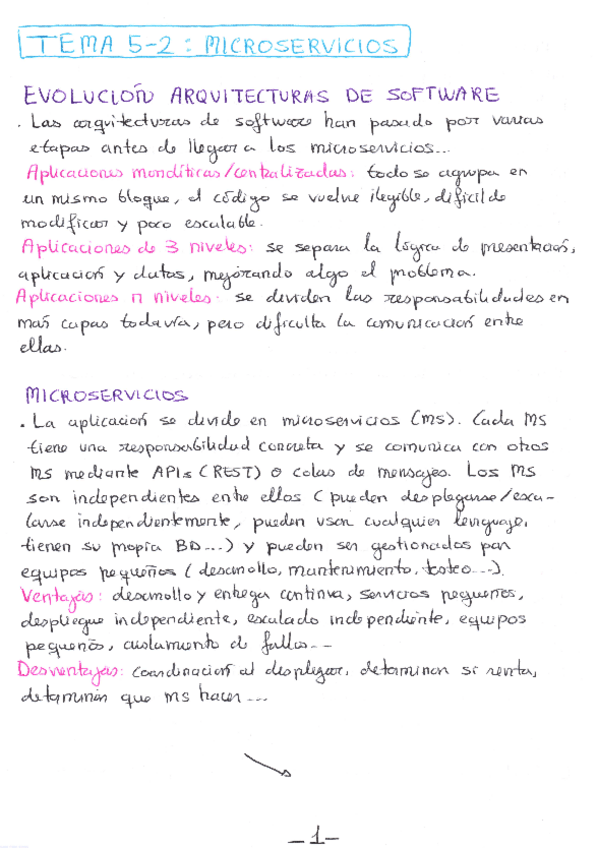 TEMA 5-2: MICROSERVICIOS
EVOLUCIÓN ARQUITECTURAS DE SOFTWARE
. Las arquitecturas de software han pasado por varias
etapas antes de llegar a los microservicios...
Aplicaciones monolíticas/centralizadas: todo se agrupa en
un mismo bloque, el código se vuelve ilegible, difícil de
modificar y poco escalable.
Aplicaciones de 3 niveles: se separa la lógica de presentación,
aplicación y datos, mejorando algo el problema.
Aplicaciones n niveles: se dividen las responsabilidades en
más capas todavía, pero dificulta la comunicación entre
ellas.
MICROSERVICIOS
. La aplicación se divide en microservicios (ms). Cada MS
tiene una responsabilidad concreta y se comunica con otros
MS mediante APIs (REST) o colas de mensajes. Los MS
son independientes entre ellos (pueden desplegarse/esca-
larse independientemente, pueden usar cualquier lenguaje,
tienen su propia BD...) y pueden ser gestionados por
equipos pequeños (desarrollo, mantenimiento, testeo...).
Ventajas: desarrollo y entrega continua, servicios pequeños,
despliegue independiente, escalado independiente, equipos
pequeños, aislamiento de fallos...
Desventajas: coordinación al desplegar, determinar si renta,
determinar que ms hacer...
-1-